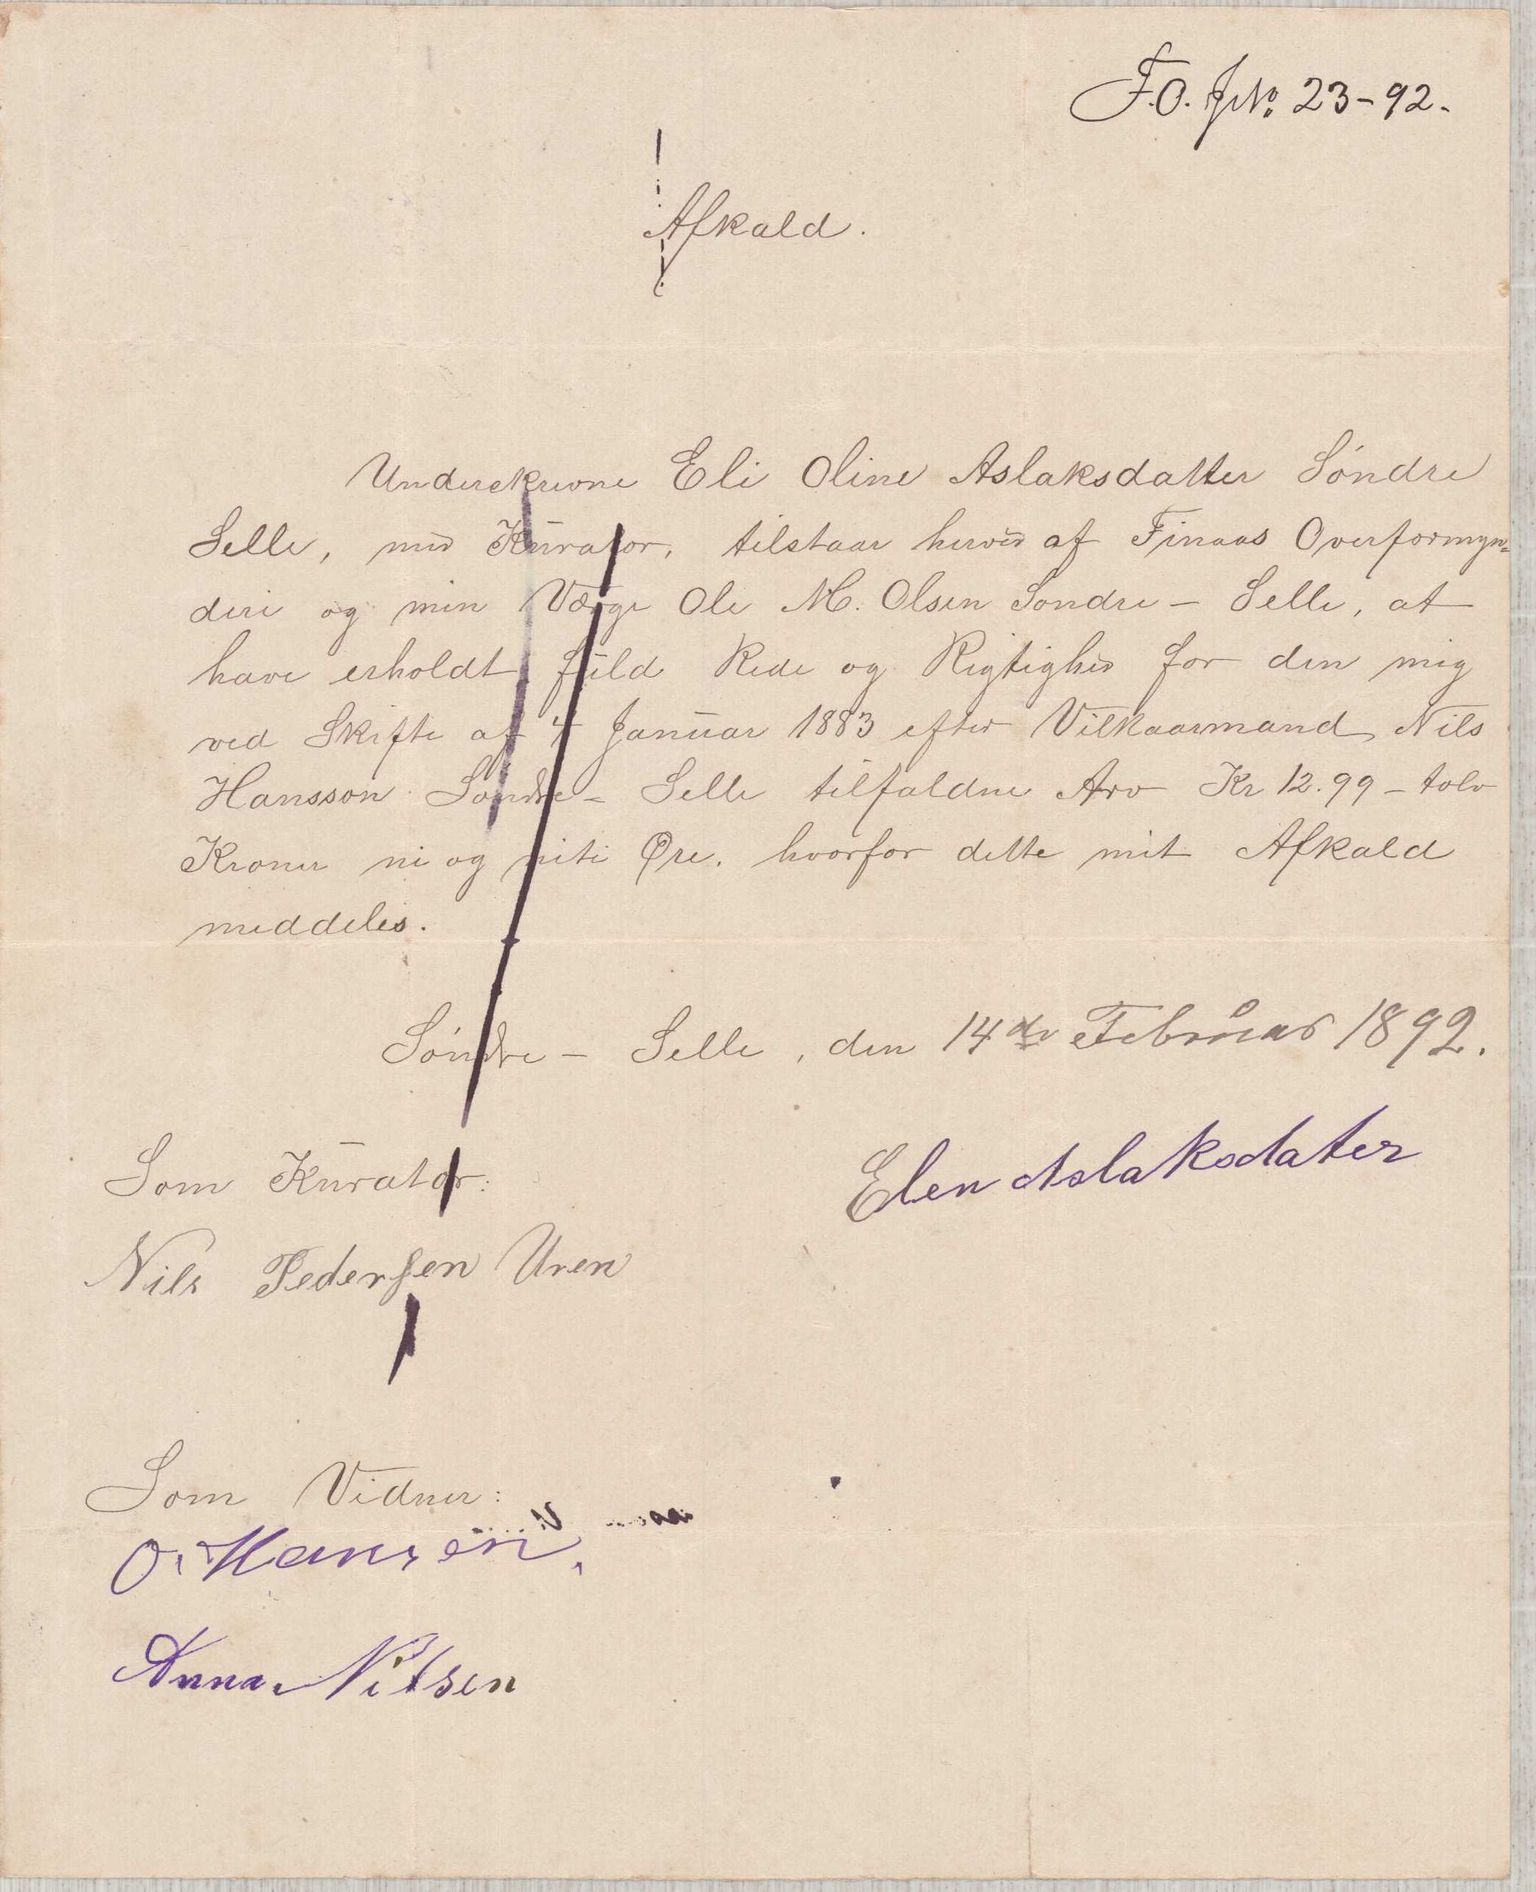 F.O. J№ 23-92.
Afkald.
Underskrevne Eli Oline Aslaksdatter Søndre
Selle, med Kurator, tilstaar herved af Finaas Overformyn-
deri og min Værge Ole M. Olsen Søndre - Selle, at
have erholdt fuld Rede og Rigtighed for den mig
ved Skifte af 4 Januar 1883 efter Vilkaarmand Nils
Hansson Søndre - Selle tilfaldne Arv Kr 12.99 - tolv
Kroner ni og niti Øre, hvorfor dette mit Afkald
meddeles.
Søndre - Selle, den 14de Februar 1892.
Elen Aslaksdater
Som Kurator:
Nils Pedersen Uren
Som Vidner:
O. Hansen.
Anna Nilsen